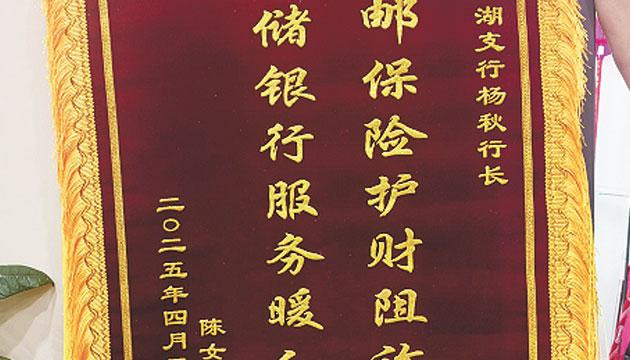 湖支行杨秋行长
邮保险护财阻
储银行服务暖
二〇二五年四月
陈女